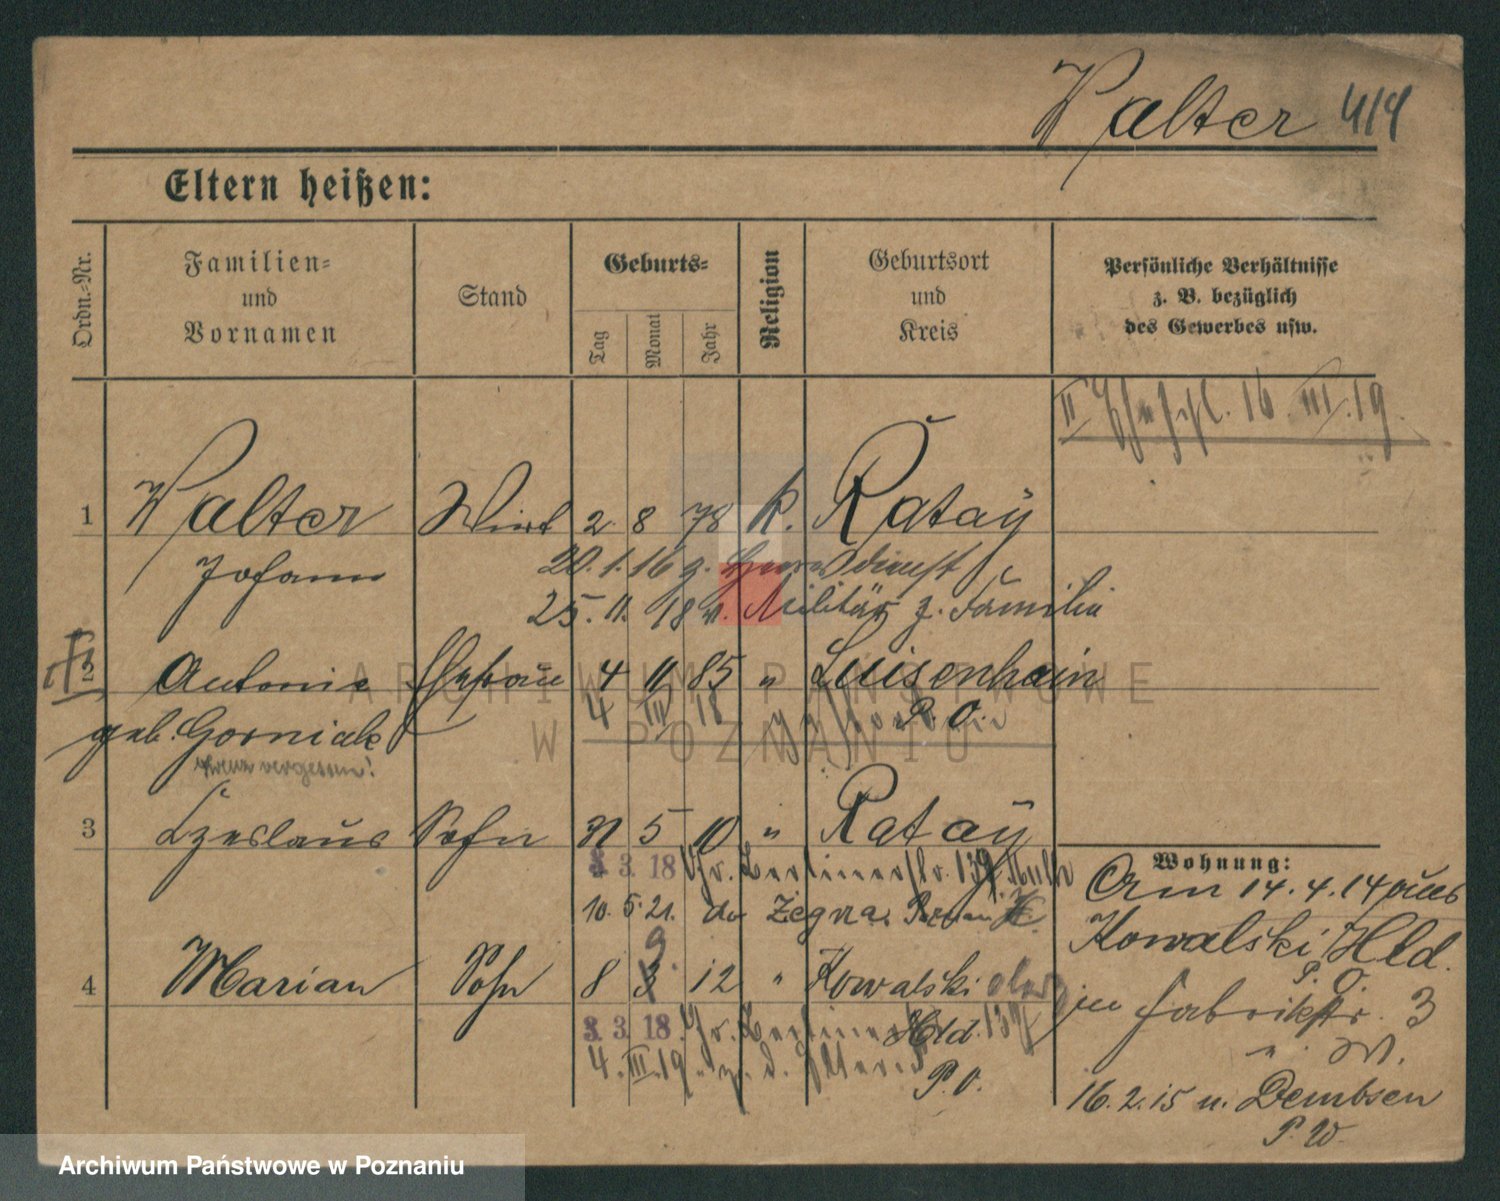 Walter 414
Eltern heißen:
Ordn.-Nr.
Familien-
und
Vornamen
Stand
Geburts-
Tag
Monat
Jahr
Religion
Geburtsort
und
Kreis
Persönliche Verhältnisse
z. B. bezüglich
des Gewerbes usw.
II 16 III. 19.
1 Walter Wirt 2. 8 78 k. Rataÿ
Johann
20. 1. 16 z. Heeresdienst
25. 11. 18 v. Militär z. Familie
2 Antonie Ehefrau 4 11 85 " Luisenhain
4 III 18 P. O.
geb. Gorniak
vergessen!
3 Czeslaus Sohn 31 5 10 " Rataÿ
3. 3. 18 Berlinerstr. 139
10. 5. 21. do Żegrze
4 Marian Sohn 8 9. 12 " Kowalski
Hld.
P. O.
3. 3. 18. Berliner
4. III. 19. z. d. Eltern
Wohnung:
Am 14. 4. 14 aus
Kowalski Hld.
P. O.
in Fabrikstr. 3
" W.
16. 2. 15 n. Dembsen
P. W.
ARCHIWUM PAŃSTWOWE
W POZNANIU
Archiwum Państwowe w Poznaniu